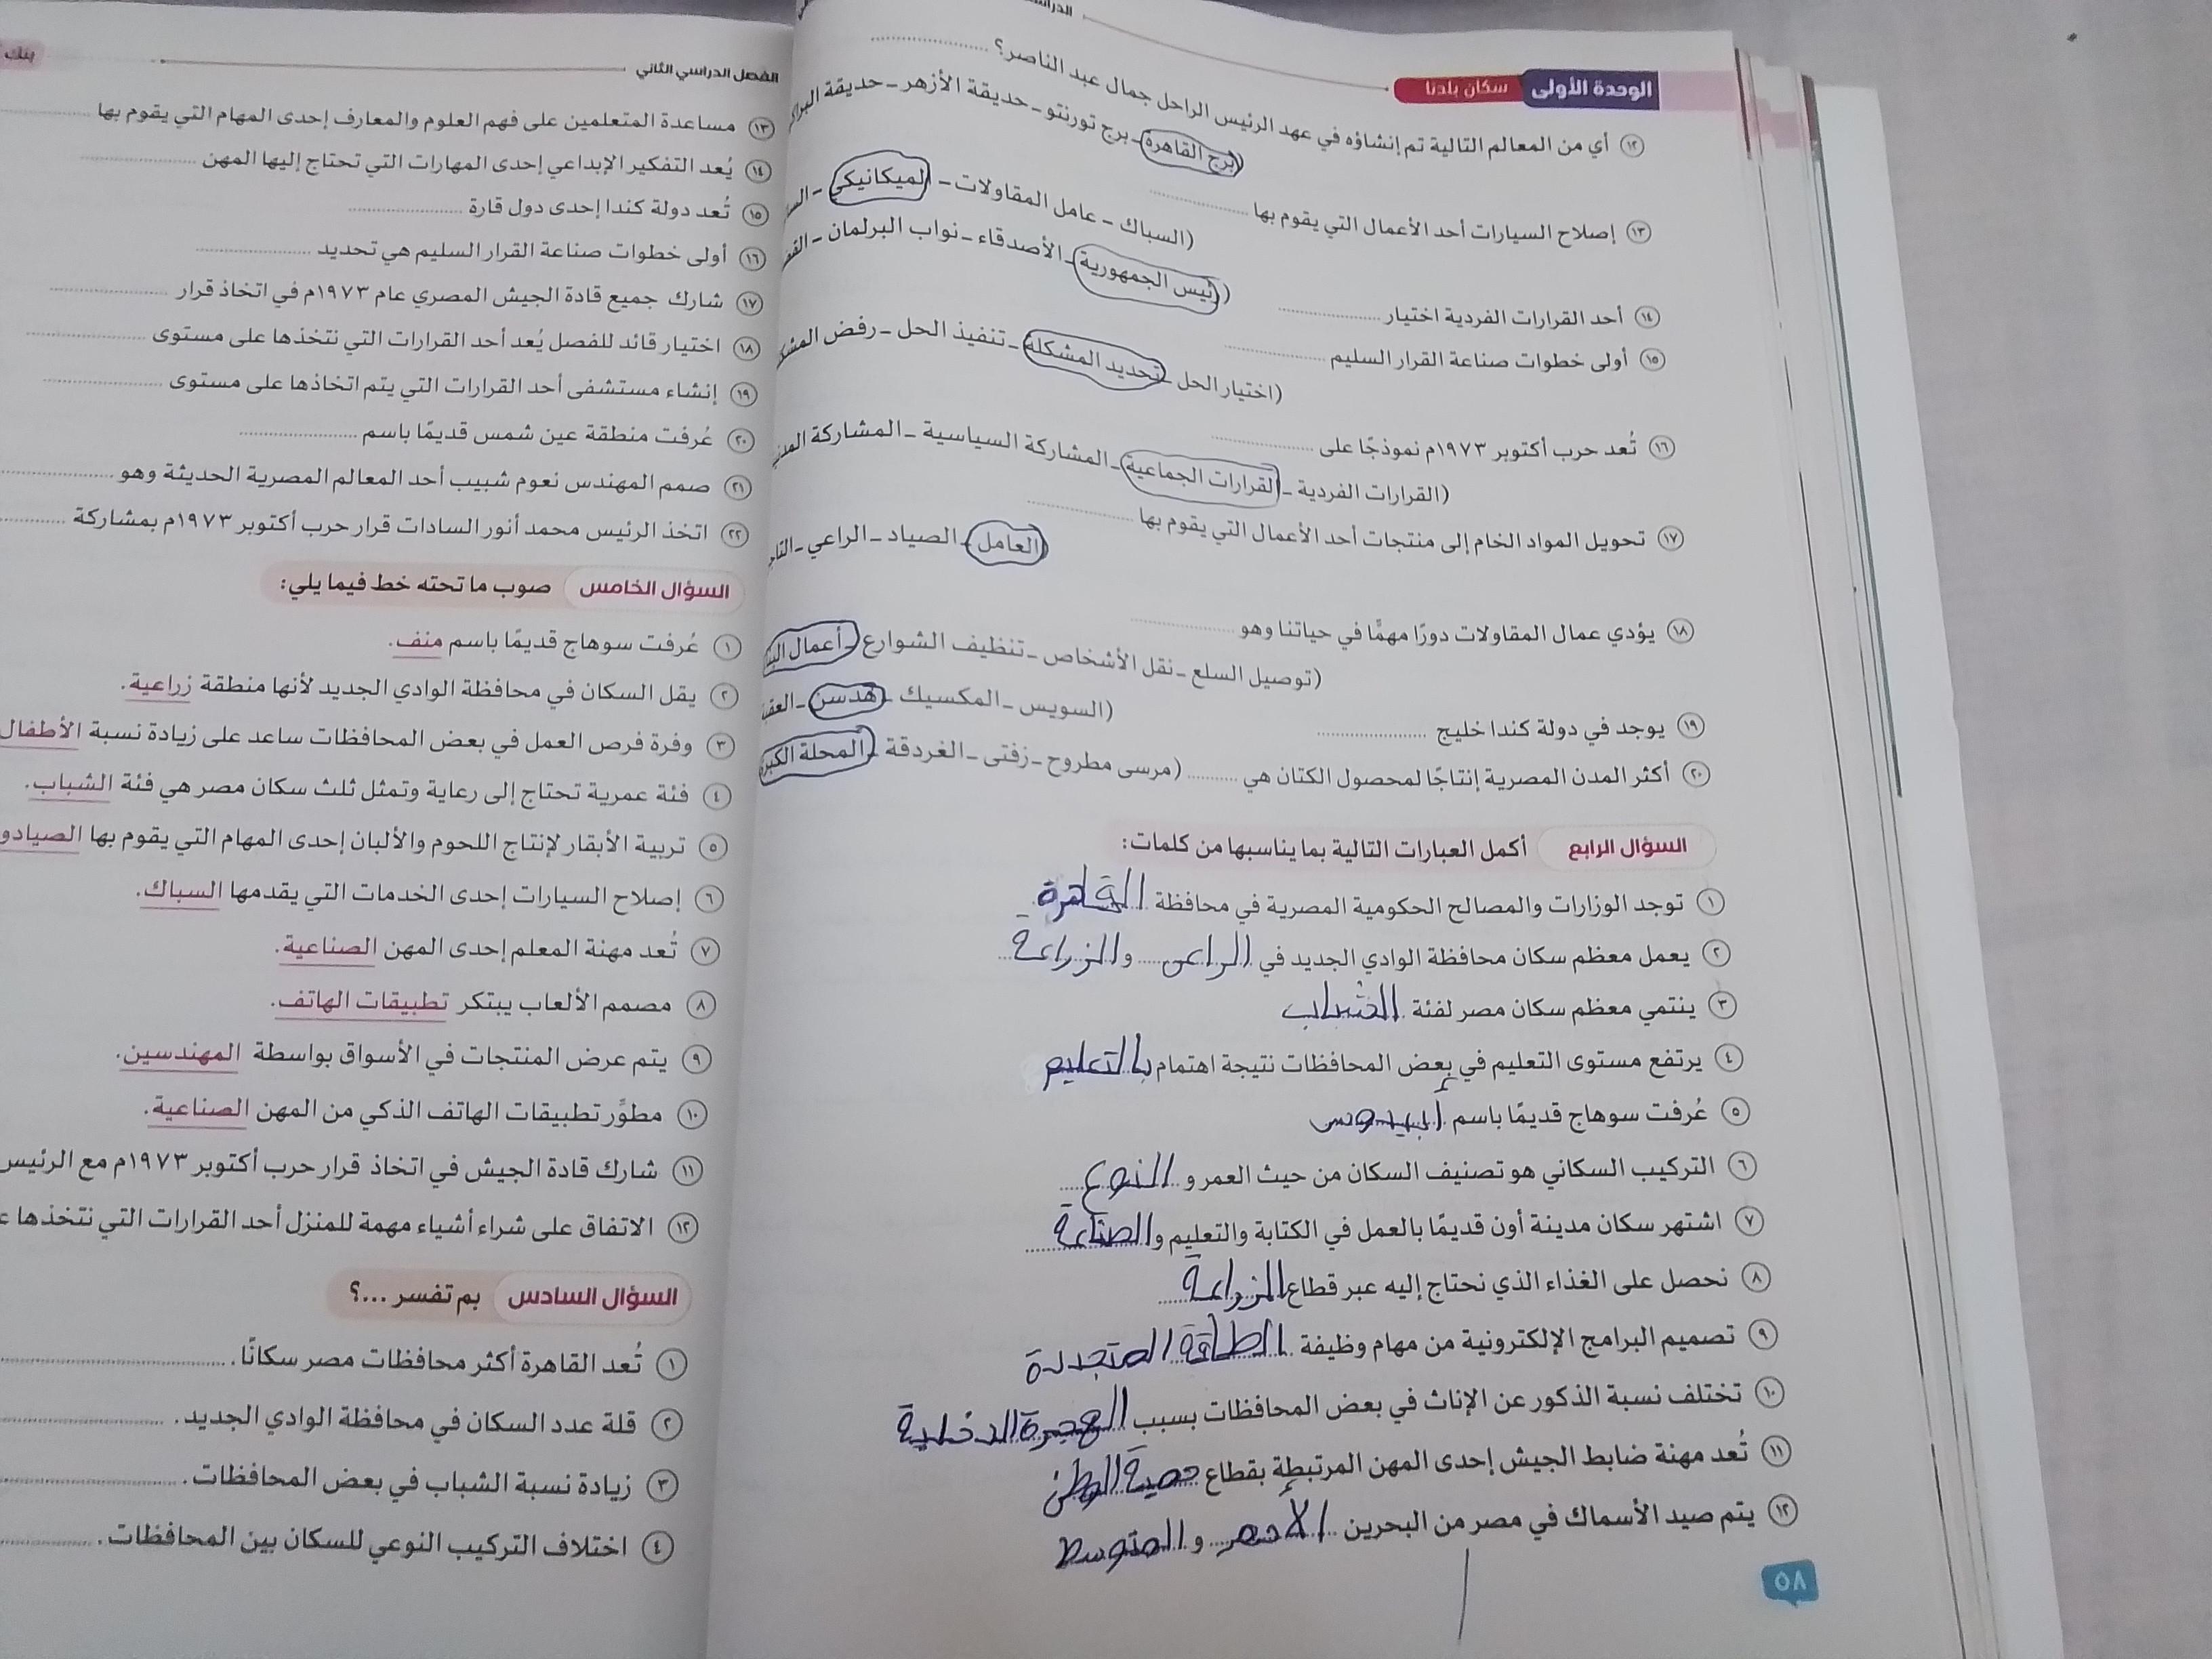 الوحدة الأولى سكان بلدنا
١٢ أي من المعالم التالية تم إنشاؤه في عهد الرئيس الراحل جمال عبد الناصر؟
(برج القاهرة – برج تورنتو – حديقة الأزهر – حديقة
١٣ إصلاح السيارات أحد الأعمال التي يقوم بها
(السباك – عامل المقاولات – الميكانيكي –
١٤ أحد القرارات الفردية اختيار
(رئيس الجمهورية – الأصدقاء – نواب البرلمان –
١٥ أولى خطوات صناعة القرار السليم
(اختيار الحل – تحديد المشكلة – تنفيذ الحل – رفض
١٦ تُعد حرب أكتوبر ١٩٧٣م نموذجًا على
(القرارات الفردية – القرارات الجماعية – المشاركة السياسية – المشاركة
١٧ تحويل المواد الخام إلى منتجات أحد الأعمال التي يقوم بها
(العامل – الصياد – الراعي –
١٨ يؤدي عمال المقاولات دورًا مهمًا في حياتنا وهو
(توصيل السلع – نقل الأشخاص – تنظيف الشوارع – أعمال
١٩ يوجد في دولة كندا خليج
(السويس – المكسيك – هدسن –
٢٠ أكثر المدن المصرية إنتاجًا لمحصول الكتان هي (مرسى مطروح – زفتى – الغردقة – المحلة
السؤال الرابع أكمل العبارات التالية بما يناسبها من كلمات:
١ توجد الوزارات والمصالح الحكومية المصرية في محافظة القاهرة
٢ يعمل معظم سكان محافظة الوادي الجديد في الراعى والزراعة
٣ ينتمي معظم سكان مصر لفئة الشباب
٤ يرتفع مستوى التعليم في بعض المحافظات نتيجة اهتمام بالتعليم
٥ عُرفت سوهاج قديمًا باسم أبيدوس
٦ التركيب السكاني هو تصنيف السكان من حيث العمر و النوع
٧ اشتهر سكان مدينة أون قديمًا بالعمل في الكتابة والتعليم والصناعة
٨ نحصل على الغذاء الذي نحتاج إليه عبر قطاع الزراعة
٩ تصميم البرامج الإلكترونية من مهام وظيفة الطاقة المتجددة
١٠ تختلف نسبة الذكور عن الإناث في بعض المحافظات بسبب الهجرة الدخلية
١١ تُعد مهنة ضابط الجيش إحدى المهن المرتبطة بقطاع حمية الوطن
١٢ يتم صيد الأسماك في مصر من البحرين الأحمر و المتوسط
٥٨
الفصل الدراسي الثاني
بنك
١٣ مساعدة المتعلمين على فهم العلوم والمعارف إحدى المهام التي يقوم بها
١٤ يُعد التفكير الإبداعي إحدى المهارات التي تحتاج إليها المهن
١٥ تُعد دولة كندا إحدى دول قارة
١٦ أولى خطوات صناعة القرار السليم هي تحديد
١٧ شارك جميع قادة الجيش المصري عام ١٩٧٣م في اتخاذ قرار
١٨ اختيار قائد للفصل يُعد أحد القرارات التي نتخذها على مستوى
١٩ إنشاء مستشفى أحد القرارات التي يتم اتخاذها على مستوى
٢٠ عُرفت منطقة عين شمس قديمًا باسم
٢١ صمم المهندس نعوم شبيب أحد المعالم المصرية الحديثة وهو
٢٢ اتخذ الرئيس محمد أنور السادات قرار حرب أكتوبر ١٩٧٣م بمشاركة
السؤال الخامس صوب ما تحته خط فيما يلي:
١ عُرفت سوهاج قديمًا باسم منف.
٢ يقل السكان في محافظة الوادي الجديد لأنها منطقة زراعية.
٣ وفرة فرص العمل في بعض المحافظات ساعد على زيادة نسبة الأطفال
٤ فئة عمرية تحتاج إلى رعاية وتمثل ثلث سكان مصر هي فئة الشباب.
٥ تربية الأبقار لإنتاج اللحوم والألبان إحدى المهام التي يقوم بها
٦ إصلاح السيارات إحدى الخدمات التي يقدمها السباك.
٧ تُعد مهنة المعلم إحدى المهن الصناعية.
٨ مصمم الألعاب يبتكر تطبيقات الهاتف.
٩ يتم عرض المنتجات في الأسواق بواسطة المهندسين.
١٠ مطوِّر تطبيقات الهاتف الذكي من المهن الصناعية.
١١ شارك قادة الجيش في اتخاذ قرار حرب أكتوبر ١٩٧٣م مع الرئيس
١٢ الاتفاق على شراء أشياء مهمة للمنزل أحد القرارات التي نتخذها
السؤال السادس بم تفسر ...؟
١ تُعد القاهرة أكثر محافظات مصر سكانًا.
٢ قلة عدد السكان في محافظة الوادي الجديد.
٣ زيادة نسبة الشباب في بعض المحافظات.
٤ اختلاف التركيب النوعي للسكان بين المحافظات.